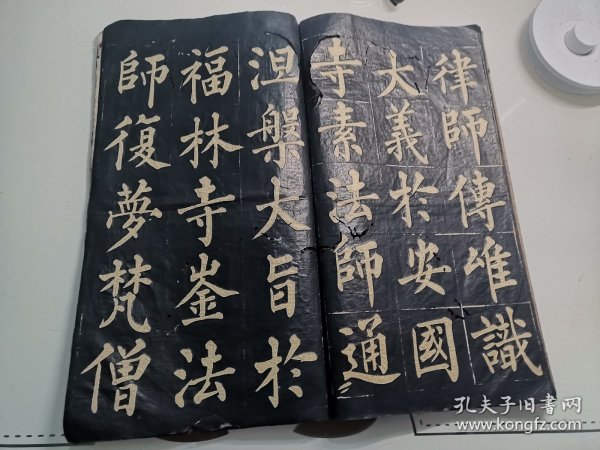 律師傳唯識
大義於安國
寺素法師通
涅槃大旨於
福林寺崟法
師復夢梵僧
孔夫子旧书网
www.kongfz.com